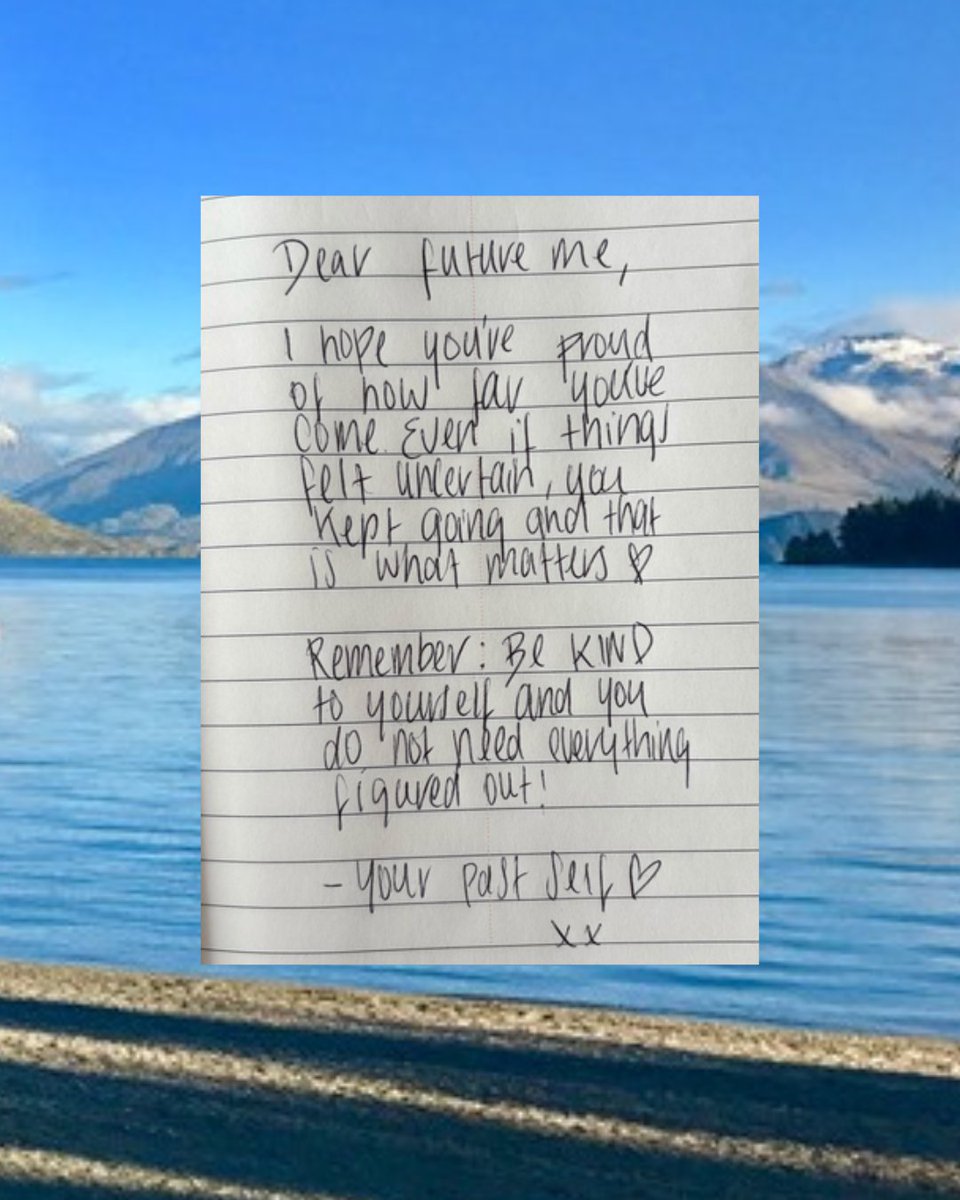 Dear future me,
I hope you've proud
of how far you've
come. Even if things
felt uncertain, you
kept going and that
is what matters ♡
Remember: Be KIND
to yourself and you
do not need everything
figured out!
- your past self ♡
xx